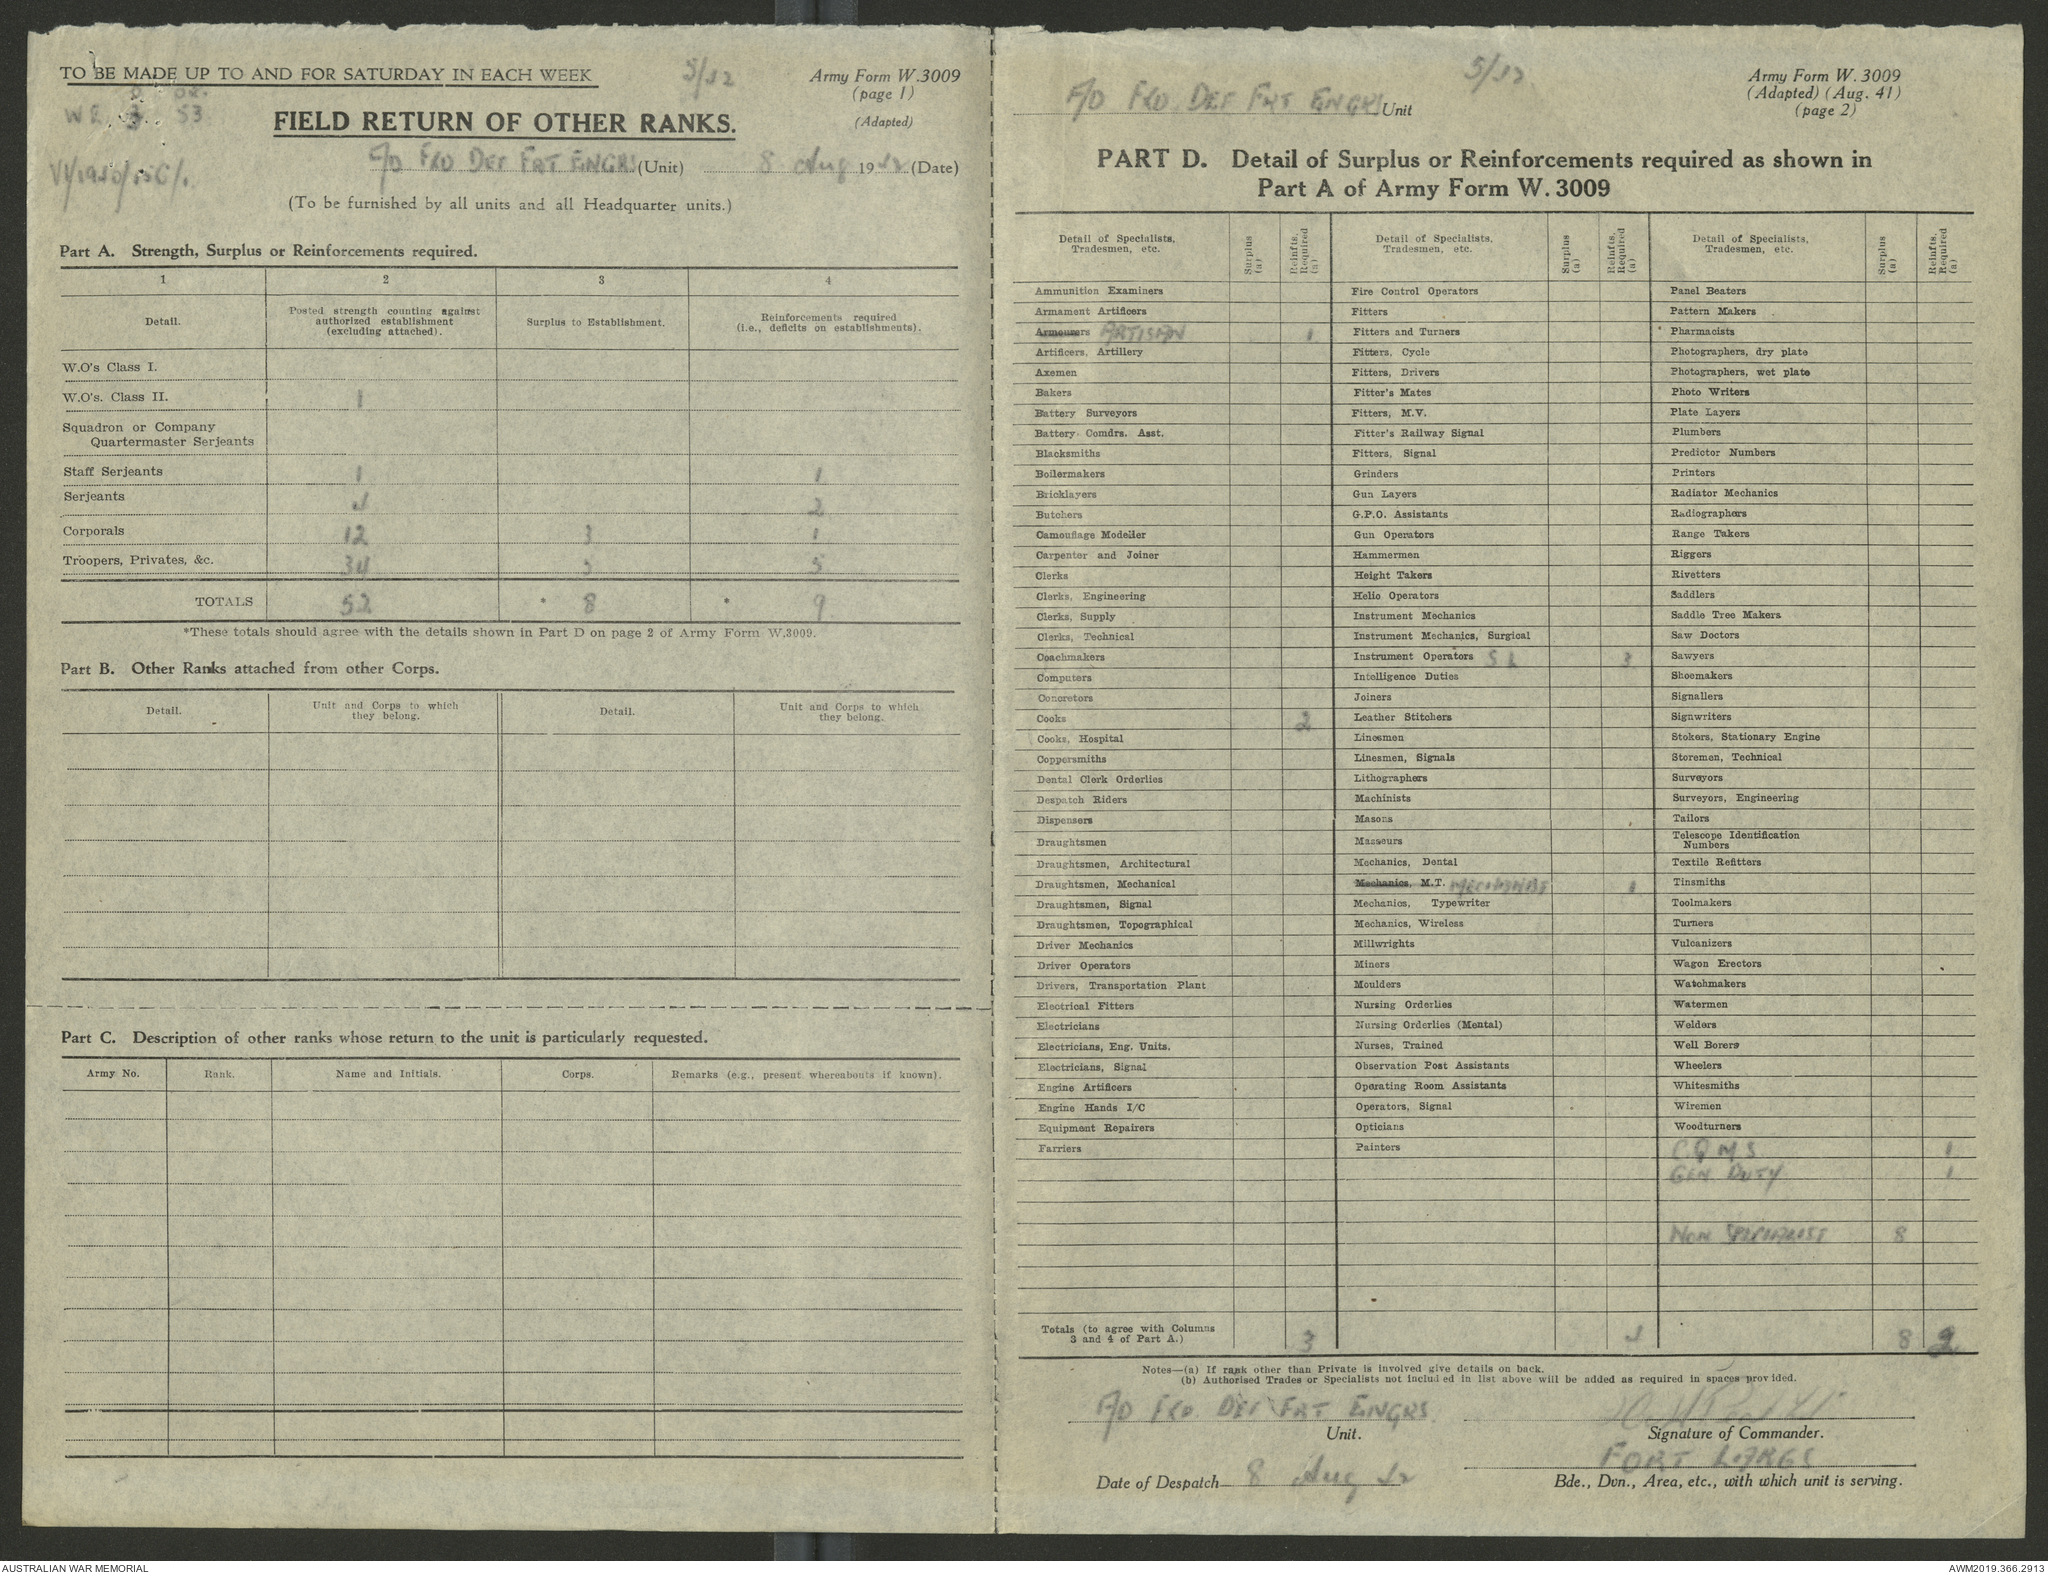 TO BE MADE UP TO AND FOR SATURDAY IN EACH WEEK
5/42
Army Form W.3009
(page 1)
(Adapted)
O OR.
WE 3 53
FIELD RETURN OF OTHER RANKS.
F/D FKD DEF FRT ENGRS (Unit) 8 Aug 1942 (Date)
(To be furnished by all units and all Headquarter units.)
Part A. Strength, Surplus or Reinforcements required.
1 2 3 4
Detail.
Posted strength counting against authorized establishment (excluding attached).
Surplus to Establishment.
Reinforcements required (i.e., deficits on establishments).
W.O's Class I.
W.O's. Class II. 1
Squadron or Company
Quartermaster Serjeants
Staff Serjeants 1 1
Serjeants 4 2
Corporals 12 3 1
Troopers, Privates, &c. 34 5 5
TOTALS 52 * 8 * 9
*These totals should agree with the details shown in Part D on page 2 of Army Form W.3009.
Part B. Other Ranks attached from other Corps.
Detail.
Unit and Corps to which they belong.
Detail.
Unit and Corps to which they belong.
Part C. Description of other ranks whose return to the unit is particularly requested.
Army No. Rank. Name and Initials. Corps. Remarks (e.g., present whereabouts if known).
F/D FKD. DEF FRT ENGRS Unit
5/42
Army Form W. 3009
(Adapted) (Aug. 41)
(page 2)
PART D. Detail of Surplus or Reinforcements required as shown in
Part A of Army Form W. 3009
Detail of Specialists, Tradesmen, etc.
Surplus (a)
Reinfts. Required (a)
Detail of Specialists, Tradesmen, etc.
Surplus (a)
Reinfts. Required (a)
Detail of Specialists, Tradesmen, etc.
Surplus (a)
Reinfts. Required (a)
Ammunition Examiners
Armament Artificers
Armourers ARTISAN 1
Artificers, Artillery
Axemen
Bakers
Battery Surveyors
Battery Comdrs. Asst.
Blacksmiths
Boilermakers
Bricklayers
Butchers
Camouflage Modeller
Carpenter and Joiner
Clerks
Clerks, Engineering
Clerks, Supply
Clerks, Technical
Coachmakers
Computers
Concretors
Cooks 2
Cooks, Hospital
Coppersmiths
Dental Clerk Orderlies
Despatch Riders
Dispensers
Draughtsmen
Draughtsmen, Architectural
Draughtsmen, Mechanical
Draughtsmen, Signal
Draughtsmen, Topographical
Driver Mechanics
Driver Operators
Drivers, Transportation Plant
Electrical Fitters
Electricians
Electricians, Eng. Units.
Electricians, Signal
Engine Artificers
Engine Hands I/C
Equipment Repairers
Farriers
Fire Control Operators
Fitters
Fitters and Turners
Fitters, Cycle
Fitters, Drivers
Fitter's Mates
Fitters, M.V.
Fitter's Railway Signal
Fitters, Signal
Grinders
Gun Layers
G.P.O. Assistants
Gun Operators
Hammermen
Height Takers
Helio Operators
Instrument Mechanics
Instrument Mechanics, Surgical
Instrument Operators S L 3
Intelligence Duties
Joiners
Leather Stitchers
Linesmen
Linesmen, Signals
Lithographers
Machinists
Masons
Masseurs
Mechanics, Dental
Mechanics, M.T. MECHANIST 1
Mechanics, Typewriter
Mechanics, Wireless
Millwrights
Miners
Moulders
Nursing Orderlies
Nursing Orderlies (Mental)
Nurses, Trained
Observation Post Assistants
Operating Room Assistants
Operators, Signal
Opticians
Painters
Panel Beaters
Pattern Makers
Pharmacists
Photographers, dry plate
Photographers, wet plate
Photo Writers
Plate Layers
Plumbers
Predictor Numbers
Printers
Radiator Mechanics
Radiographers
Range Takers
Riggers
Rivetters
Saddlers
Saddle Tree Makers
Saw Doctors
Sawyers
Shoemakers
Signallers
Signwriters
Stokers, Stationary Engine
Storemen, Technical
Surveyors
Surveyors, Engineering
Tailors
Telescope Identification
Numbers
Textile Refitters
Tinsmiths
Toolmakers
Turners
Vulcanizers
Wagon Erectors
Watchmakers
Watermen
Welders
Well Borers
Wheelers
Whitesmiths
Wiremen
Woodturners
C Q M S 1
GEN DUTY 1
NON SPECIALIST 8
Totals (to agree with Columns
3 and 4 of Part A.) 3 4 8 2
Notes—(a) If rank other than Private is involved give details on back.
(b) Authorised Trades or Specialists not included in list above will be added as required in spaces provided.
F/D FKD. DEF FRT ENGRS.
Unit.
Signature of Commander.
FORT LARGS
Date of Despatch 8 Aug 42
Bde., Dvn., Area, etc., with which unit is serving.
AUSTRALIAN WAR MEMORIAL
AWM2019.366.2913